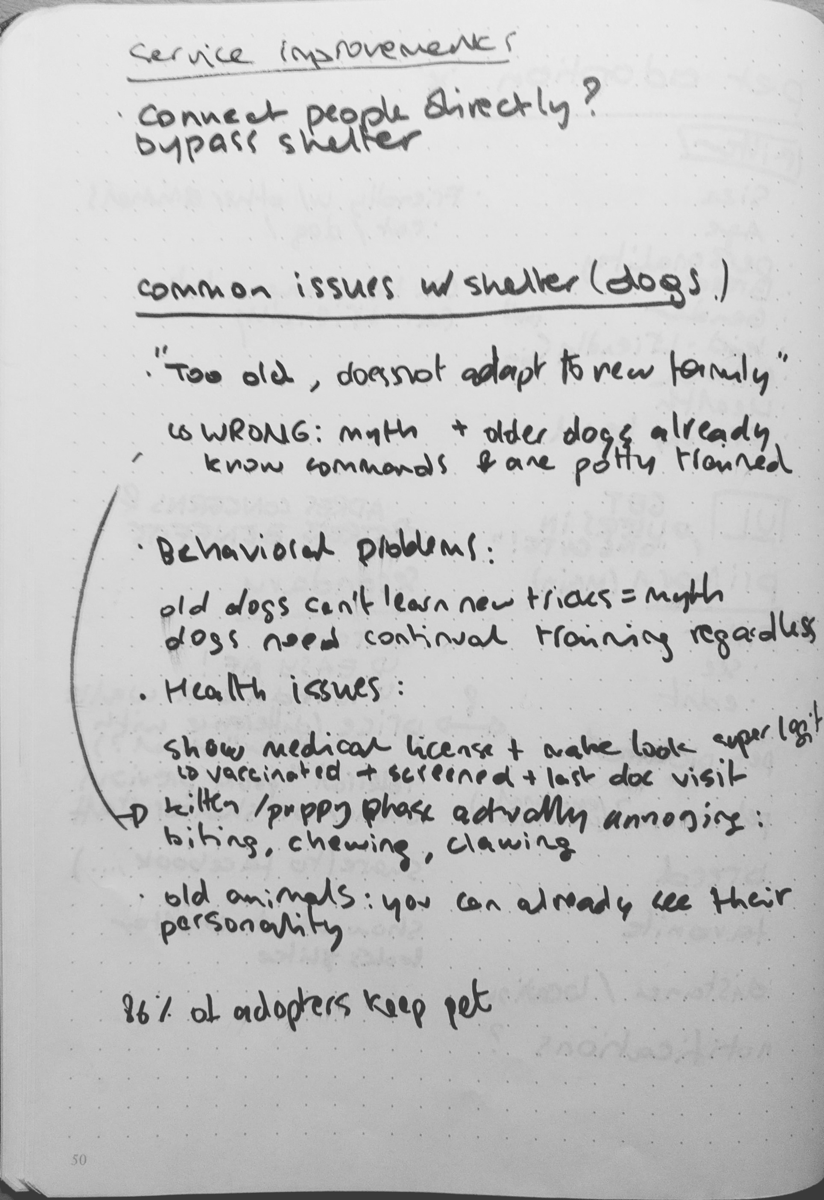 service improvements
· connect people directly?
bypass shelter
common issues w/ shelter (dogs)
· "Too old, does not adapt to new family"
↳ WRONG: myth + older dogs already
know commands & are potty trained
· Behavioral problems:
old dogs can't learn new tricks = myth
dogs need continual training regardless
· Health issues:
show medical license + make look super legit
↳ vaccinated + screened + last doc visit
→ kitten/puppy phase actually annoying:
biting, chewing, clawing
· old animals: you can already see their
personality
86% of adopters keep pet
50